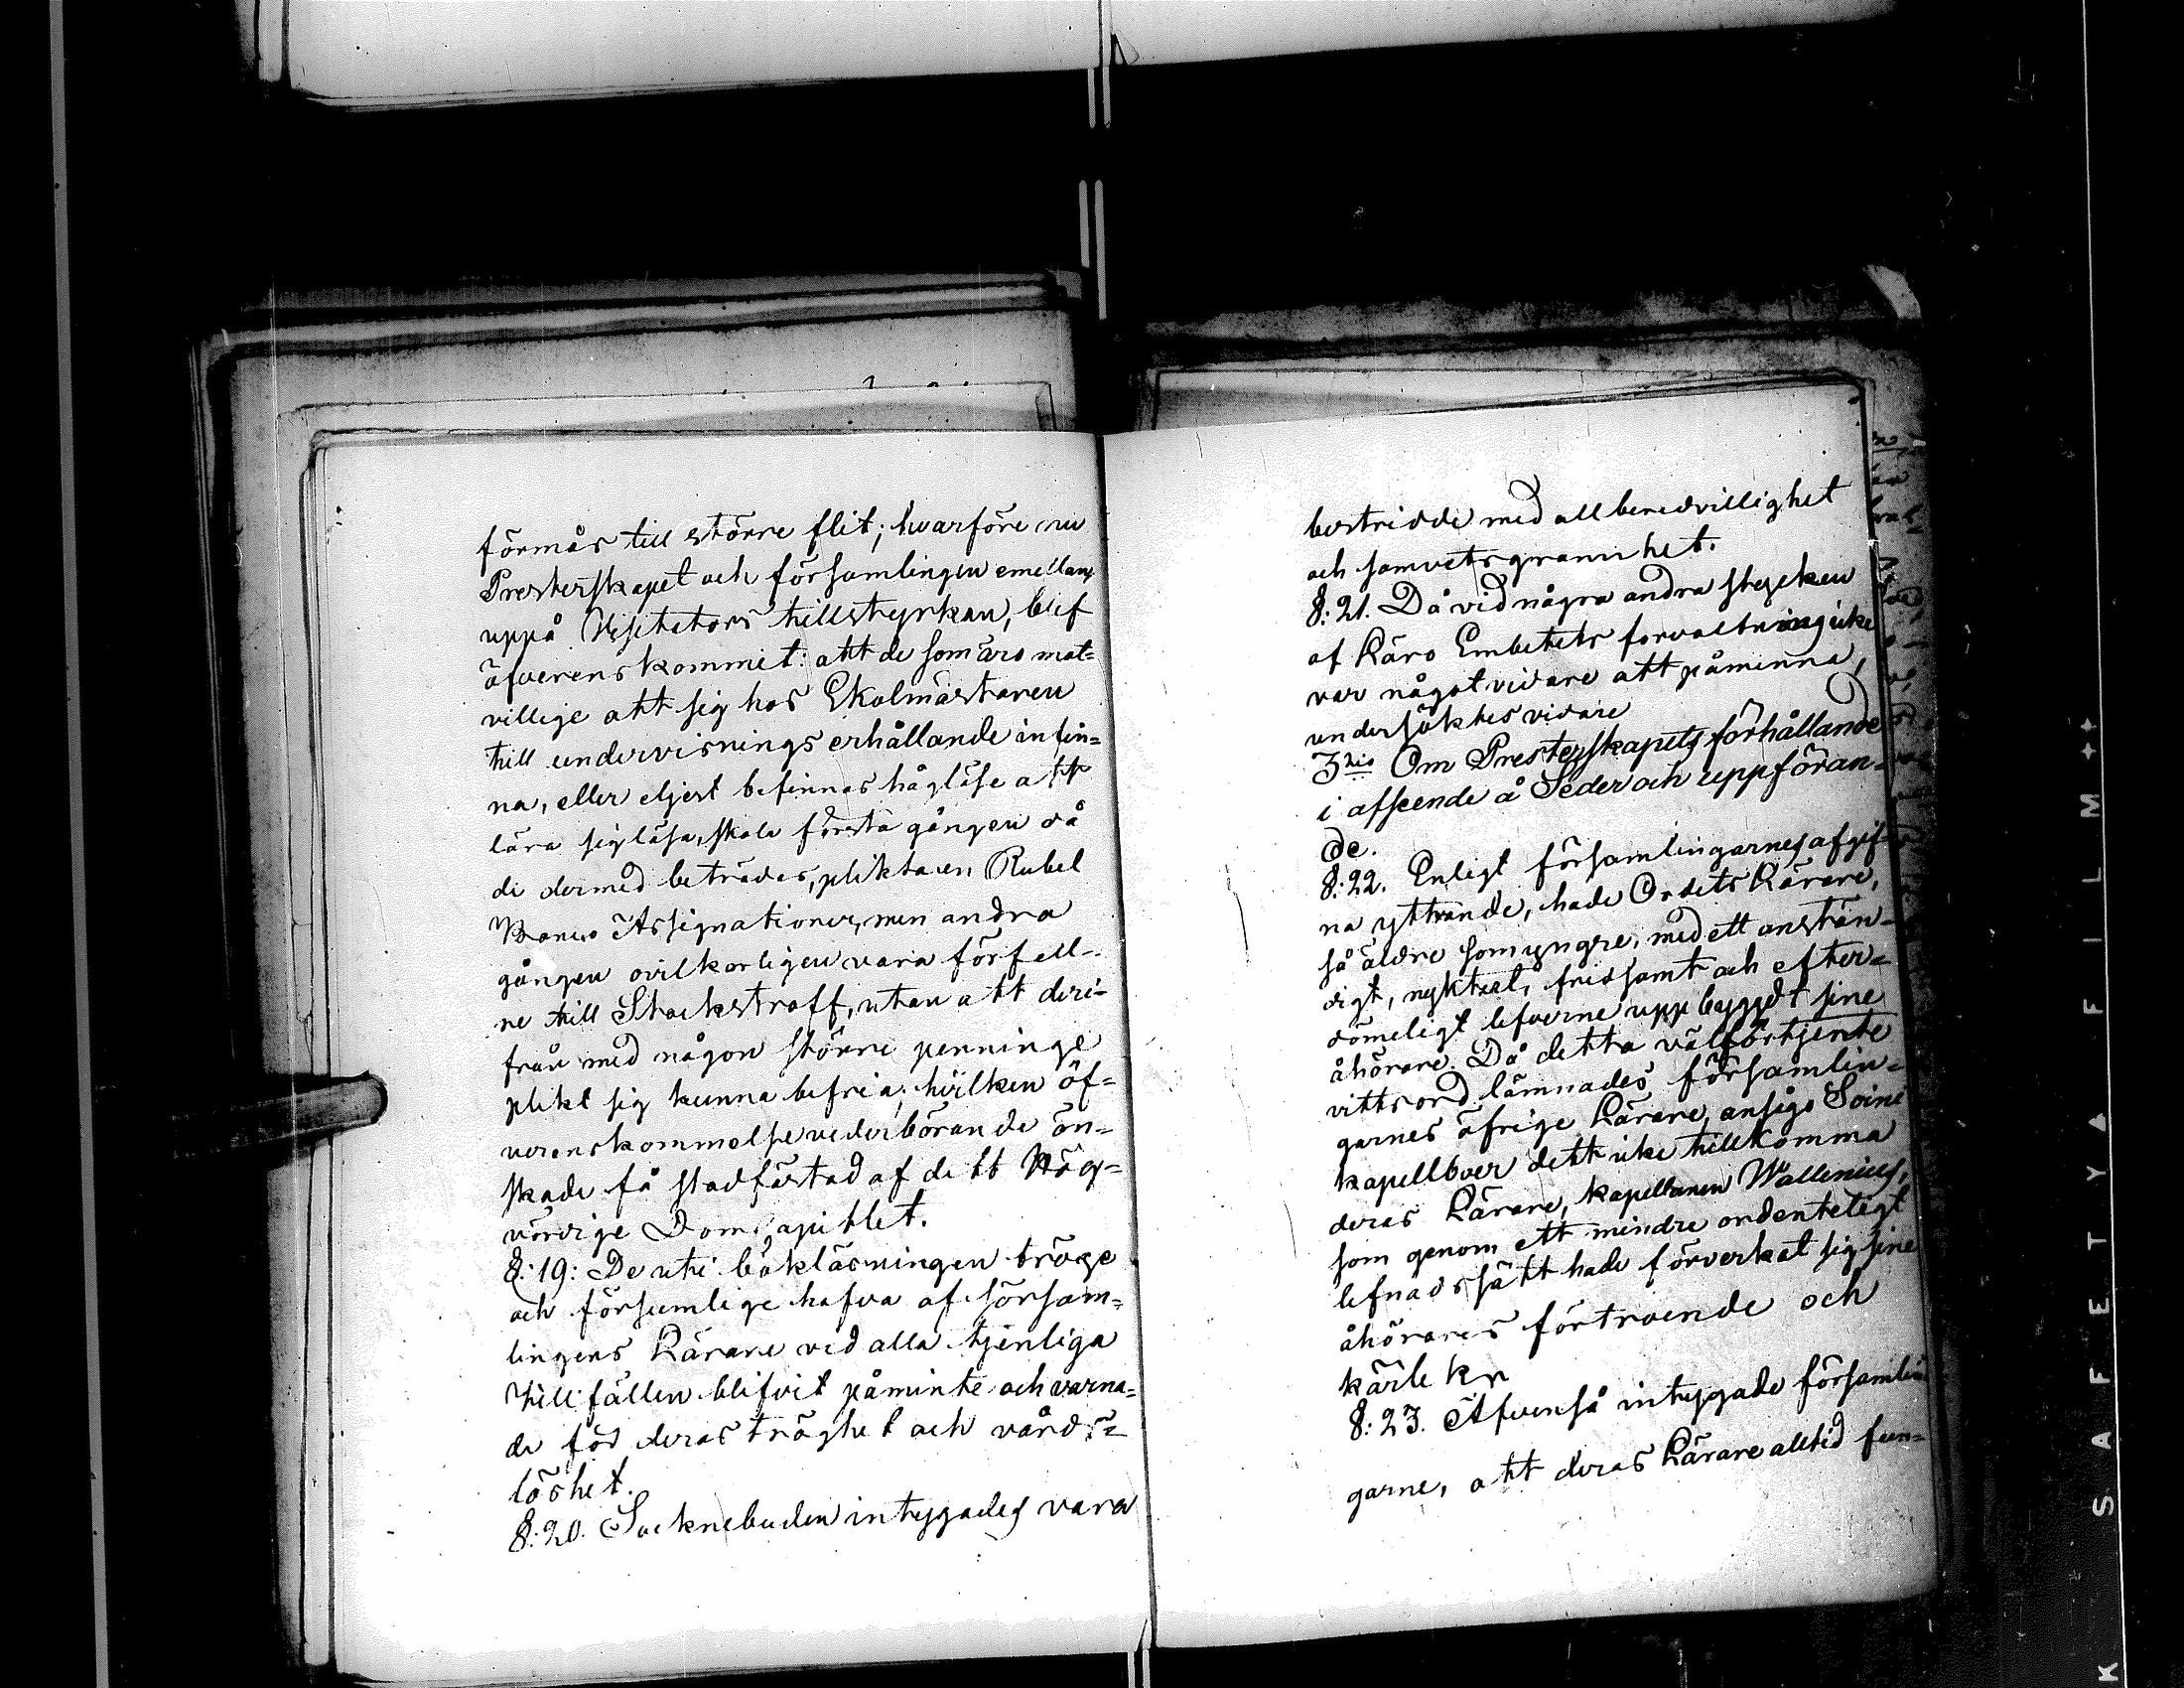 förmås till större flit; hvarföre nu
Presterskapet och församlingen emellan,
uppå Visitators tillstyrkan, blef
öfverenskommit: att de som äro mot-
villige att sig hos Skolmästaren
till undervisnings erhållande infin-
na, eller eljest befinnas håglöse att
lära sig läsa, skola första gången då
de dermed beträdas, plikta en Rubel
Banco Assignationer, men andra
gången ovilkorligen vara förfell-
ne till Stockstraff, utan att deri-
från med någon större penninge
plikt sig kunna befria; hvilken öf-
verenskommelse vederbörande ön-
skade få stadfästad af dett Hög-
vördige Domcapitlet.
§: 19: De uti bokläsningen tröge
och försumlige hafva af försam-
lingens Lärare vid alla tjenliga
tillfällen blifvit påminte och varna-
de för deras tröghet och vårds-
löshet.
§: 20. Socknebuden intygades vara
bestridde med all beredvillighet
och samvetsgrannhet.
§: 21. Då vid några andra stycken
af Läro Embetets forvaltning icke
var något vidare att påminna,
undersöktes vidare
3tio Om Presterskapets förhållande
i afseende å Seder och uppföran-
de.
§: 22. Enligt församlingarnes afgif-
na yttrande, hade Ordets Lärare,
så äldre som yngre, med ett anstän-
digt, nyktert, fridsamt och efter-
dömeligt lefverne uppbyggdt sine
åhörare. Då detta välförtjente
vittsord lämnades församlin-
garnes öfrige Lärare, ansågo Soini
kapellboer dett icke tillkomma
deras Lärare, kapellanen Wallenius,
som genom ett mindre ordenteligt
lefnadssätt hade förverkat sig sine
åhörares förtroende och
kärlek
§: 23. Äfvenså intygade församlin
garne, att deras Lärare alltid fun-
K SAFETY FILM